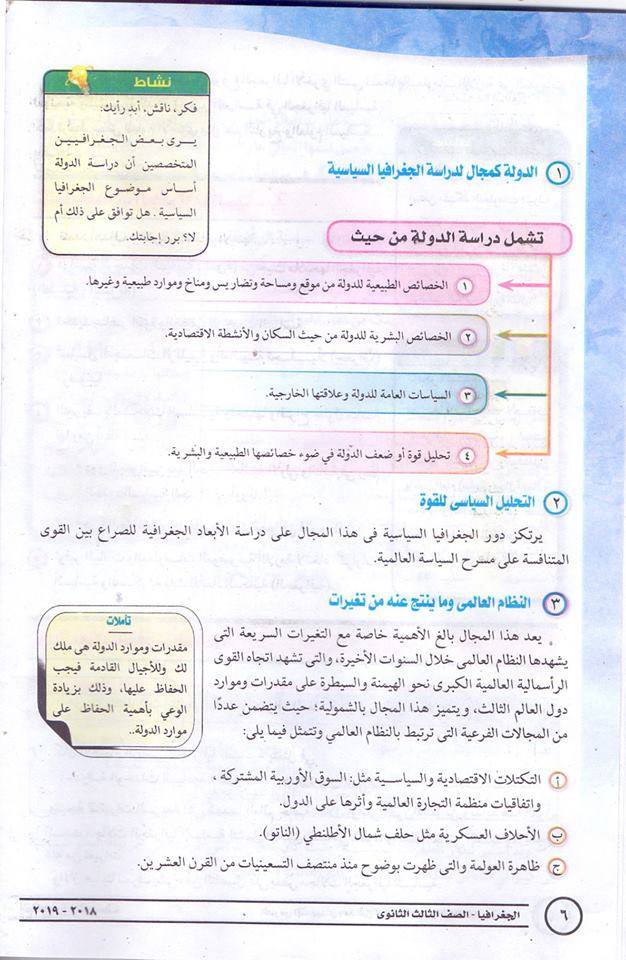 نشاط
فكر، ناقش، أبدِ رأيك:
يرى بعض الجغرافيين
المتخصصين أن دراسة الدولة
أساس موضوع الجغرافيا
السياسية. هل توافق على ذلك أم
لا؟ برر إجابتك.
١ الدولة كمجال لدراسة الجغرافيا السياسية
تشمل دراسة الدولة من حيث
١ الخصائص الطبيعية للدولة من موقع ومساحة وتضاريس ومناخ وموارد طبيعية وغيرها.
٢ الخصائص البشرية للدولة من حيث السكان والأنشطة الاقتصادية.
٣ السياسات العامة للدولة وعلاقتها الخارجية.
٤ تحليل قوة أو ضعف الدولة في ضوء خصائصها الطبيعية والبشرية.
٢ التحليل السياسى للقوة
يرتكز دور الجغرافيا السياسية فى هذا المجال على دراسة الأبعاد الجغرافية للصراع بين القوى
المتنافسة على مسرح السياسة العالمية.
٣ النظام العالمى وما ينتج عنه من تغيرات
يعد هذا المجال بالغ الأهمية خاصة مع التغيرات السريعة التى
يشهدها النظام العالمى خلال السنوات الأخيرة، والتى تشهد اتجاه القوى
الرأسمالية العالمية الكبرى نحو الهيمنة والسيطرة على مقدرات وموارد
دول العالم الثالث، ويتميز هذا المجال بالشمولية؛ حيث يتضمن عددًا
من المجالات الفرعية التى ترتبط بالنظام العالمي وتتمثل فيما يلى:
تأملات
مقدرات وموارد الدولة هى ملك
لك وللأجيال القادمة فيجب
الحفاظ عليها، وذلك بزيادة
الوعي بأهمية الحفاظ على
موارد الدولة..
أ التكتلات الاقتصادية والسياسية مثل: السوق الأوربية المشتركة ،
واتفاقيات منظمة التجارة العالمية وأثرها على الدول.
ب الأحلاف العسكرية مثل حلف شمال الأطلنطي (الناتو).
ج ظاهرة العولمة والتى ظهرت بوضوح منذ منتصف التسعينيات من القرن العشرين.
٦ الجغرافيا - الصف الثالث الثانوى ٢٠١٨ - ٢٠١٩